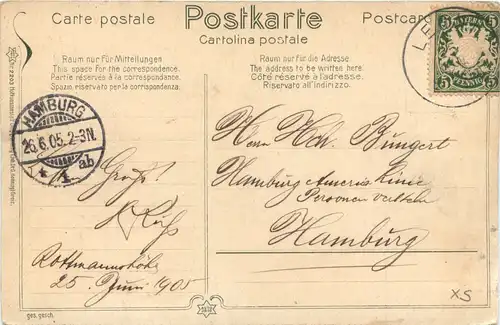 Carte postale
Postkarte
Postcard
Cartolina postale
Raum nur für Mitteilungen
This space for the correspondence.
Partie réservée à la correspondance.
Spazio riservato per la corrispondenza.
Raum nur für die Adresse.
The address to be written here
Côté réservé à l'adresse.
Riservato all'indirizzo.
BAYERN
5
5
PFENNIG
HAMBURG
26.6.05.2-3N.
* 1 ab
Gruß!
Rottmannshöhe
25. Juni 1905
Herrn Hch. Bungert
Hamburg Amerika Linie
Personenverkehr
Hamburg
XS
ges. gesch.